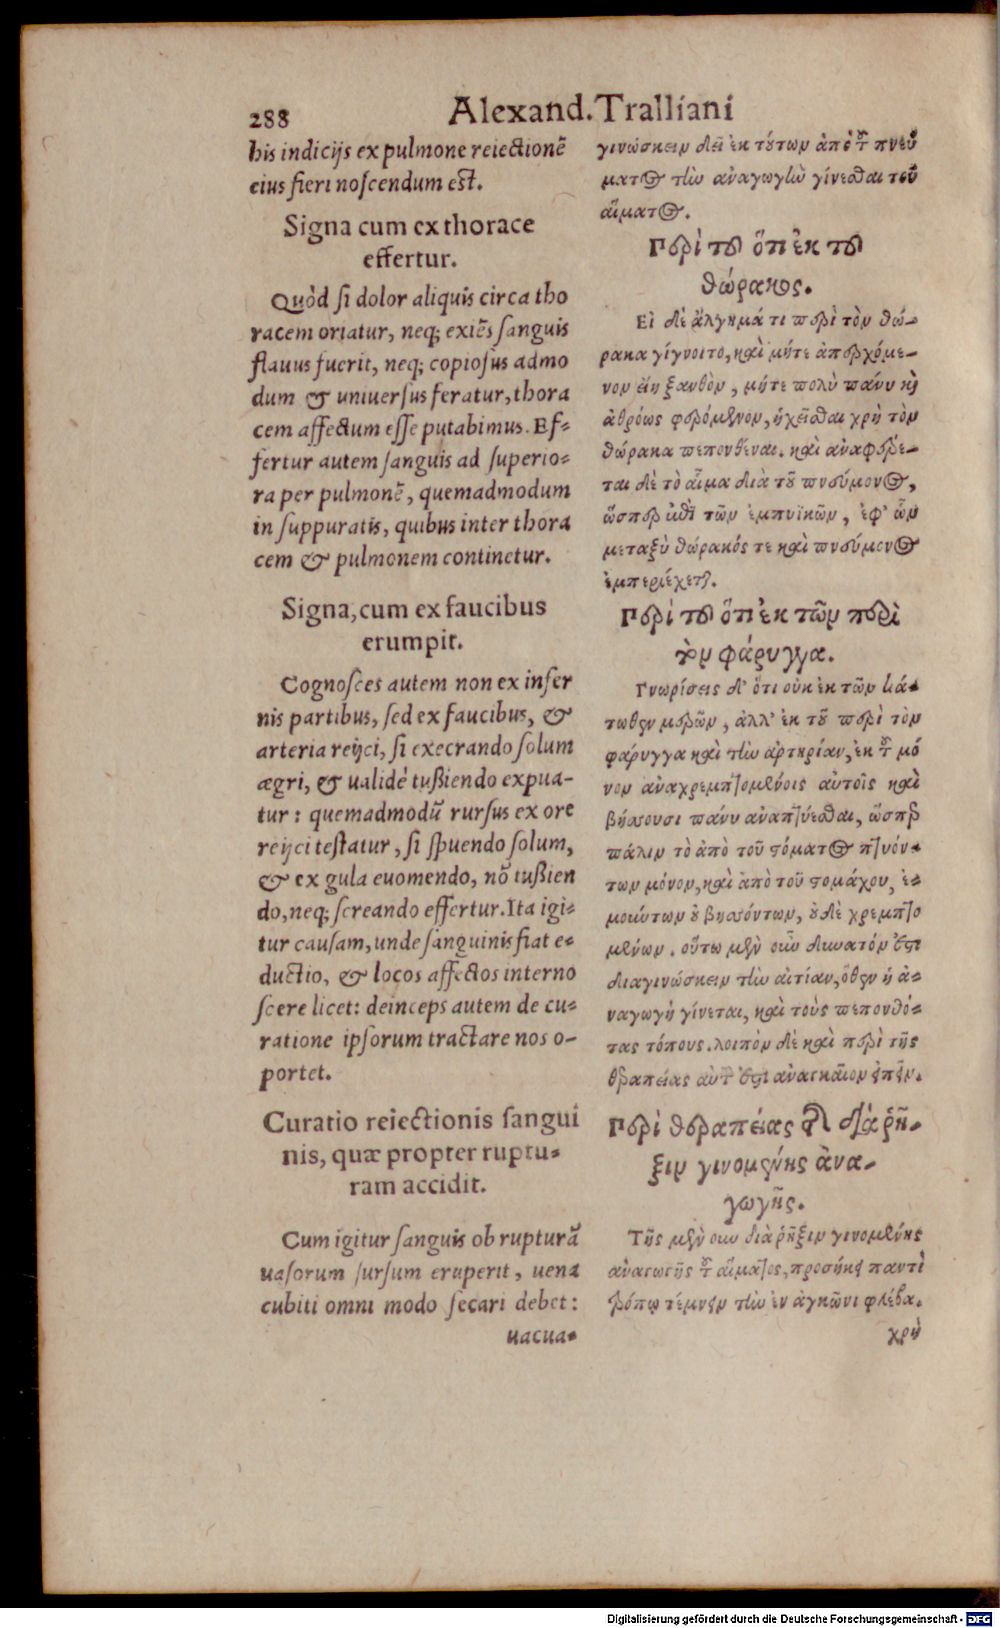 288
Alexand. Tralliani
his indicijs ex pulmone reiectionẽ
eius fieri noſcendum eſt.
Signa cum ex thorace
effertur.
Quòd ſi dolor aliquis circa tho
racem oriatur, neq; exiẽs ſanguis
flauus fuerit, neq; copioſus admo
dum & uniuerſus feratur, thora
cem affectum eſſe putabimus. Ef-
fertur autem ſanguis ad ſuperio-
ra per pulmonẽ, quemadmodum
in ſuppuratis, quibus inter thora
cem & pulmonem continetur.
Signa, cum ex faucibus
erumpit.
Cognoſces autem non ex infer
nis partibus, ſed ex faucibus, &
arteria reijci, ſi execrando ſolum
ægri, & ualidè tußiendo expua-
tur: quemadmodũ rurſus ex ore
reijci teſtatur, ſi ſpuendo ſolum,
& ex gula euomendo, nõ tußien
do, neq; ſcreando effertur. Ita igi-
tur cauſam, unde ſanguinis fiat e-
ductio, & locos affectos interno
ſcere licet: deinceps autem de cu-
ratione ipſorum tractare nos o-
portet.
Curatio reiectionis ſangui
nis, quæ propter ruptu-
ram accidit.
Cum igitur ſanguis ob rupturã
uaſorum ſurſum eruperit, uena
cubiti omni modo ſecari debet:
uacua-
γινώσκειν δεῖ ἐκ τούτων ἀπὸ τοῦ πνεύ
ματος τὴν ἀναγωγὴν γίνεσθαι τοῦ
αἵματος.
Περὶ τοῦ ὅτι ἐκ τοῦ
θώρακος.
Εἰ δὲ ἄλγημά τι περὶ τὸν θώ-
ρακα γίγνοιτο, καὶ μήτε ἀπερχόμε-
νον εἴη ξανθὸν, μήτε πολὺ πάνυ καὶ
ἀθρόως φερόμενον, ἡγεῖσθαι χρὴ τὸν
θώρακα πεπονθέναι. καὶ ἀναφέρε-
ται δὲ τὸ αἷμα διὰ τοῦ πνεύμονος,
ὥσπερ καὶ ἐπὶ τῶν ἐμπυϊκῶν, ἐφ' ὧν
μεταξὺ θώρακός τε καὶ πνεύμονος
ἐμπεριέχεται.
Περὶ τοῦ ὅτι ἐκ τῶν περὶ
τὸν φάρυγγα.
Γνωρίσεις δ' ὅτι οὐκ ἐκ τῶν κά-
τωθεν μερῶν, ἀλλ' ἐκ τοῦ περὶ τὸν
φάρυγγα καὶ τὴν ἀρτηρίαν, ἐκ τοῦ μό
νον ἀναχρεμπτομένοις αὐτοῖς καὶ
βήσσουσι πάνυ ἀναπτύεσθαι, ὥσπερ
πάλιν τὸ ἀπὸ τοῦ στόματος πτυόν-
των μόνον, καὶ ἀπὸ τοῦ στομάχου, ἐ-
μούντων οὐ βησσόντων, οὐδὲ χρεμπτο
μένων. οὕτω μὲν οὖν δυνατόν ἐστι
διαγινώσκειν τὴν αἰτίαν, ὅθεν ἡ ἀ-
ναγωγὴ γίνεται, καὶ τοὺς πεπονθό-
τας τόπους. λοιπὸν δὲ καὶ περὶ τῆς
θεραπείας αὐτῶν ἐστι ἀναγκαῖον εἰπεῖν.
Περὶ θεραπείας τῆς διὰ ῥῆ-
ξιν γινομένης ἀνα-
γωγῆς.
Τῆς μὲν οὖν διὰ ῥῆξιν γινομένης
ἀναγωγῆς τοῦ αἵματος, προσήκει παντὶ
τρόπῳ τέμνειν τὴν ἐν ἀγκῶνι φλέβα.
χρὴ
Digitalisierung gefördert durch die Deutsche Forschungsgemeinschaft - DFG